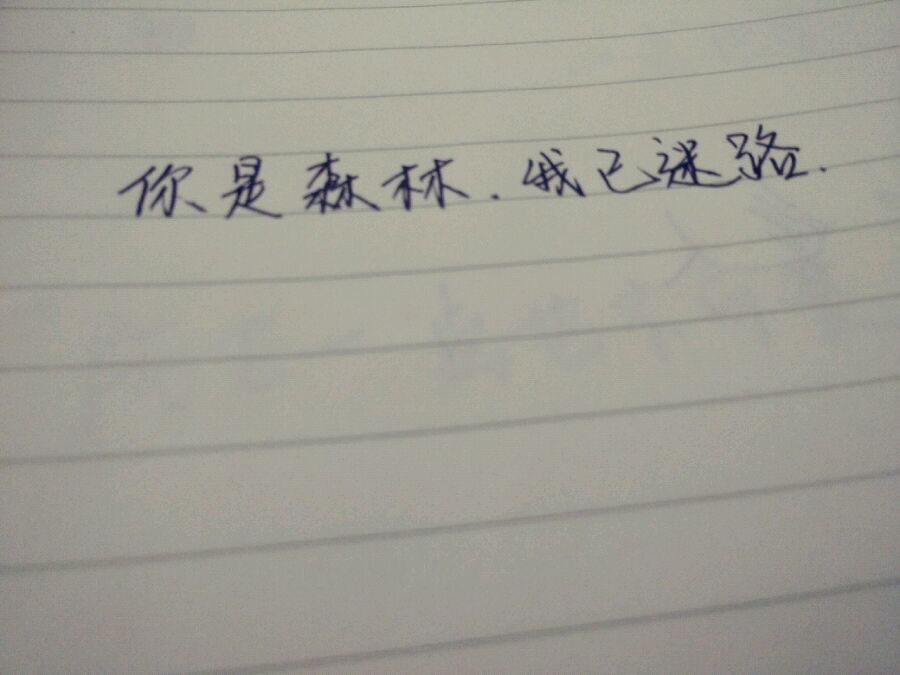 你是森林.我已迷路.